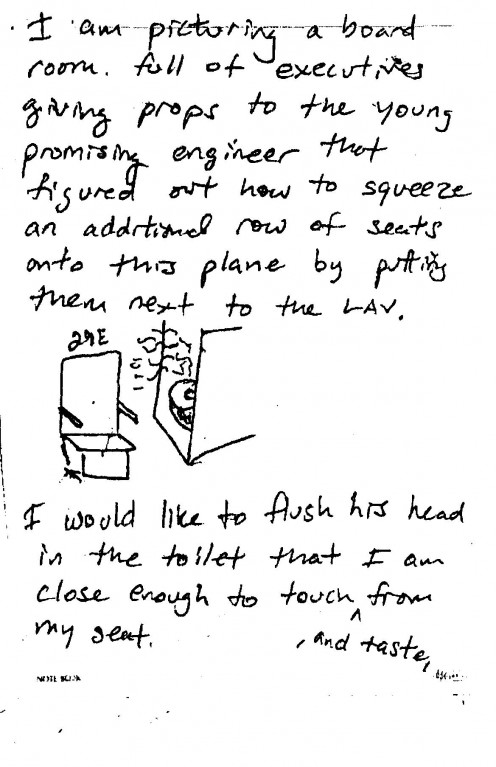 I am picturing a board
room. full of executives
giving props to the young
promising engineer that
figured out how to squeeze
an additional row of seats
onto this plane by putting
them next to the LAV.
29E
I would like to flush his head
in the toilet that I am
close enough to touch ^ from
my seat.
, and taste,
NOTE BOOK